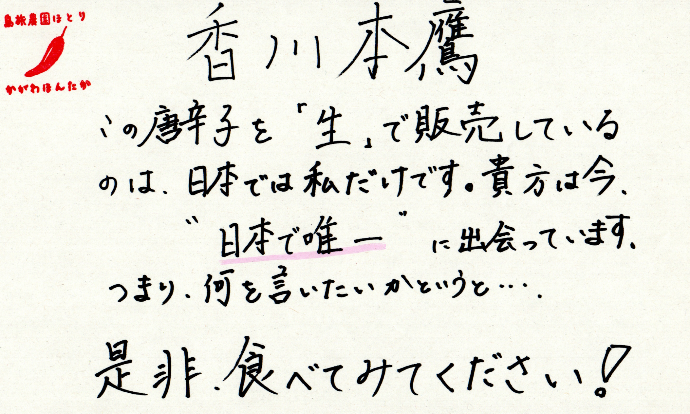 島旅農園ほとり
かがわほんたか
香川本鷹
この唐辛子を「生」で販売している
のは、日本では私だけです。貴方は今、
"日本で唯一"に出会っています。
つまり、何を言いたいかというと….
是非、食べてみてください!